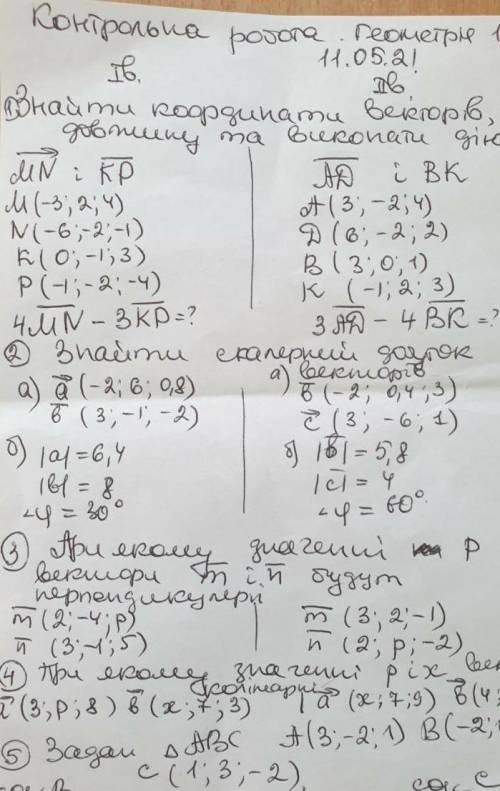 Контрольна робота. Геометрія 1
11.05.21
Iв. IIв
① Знайти координати векторів,
довжину та виконати дію
MN і KP AD і BK
M(-3; 2; 4) A(3; -2; 4)
N(-6; -2; -1) Д(6; -2; 2)
K(0; -1; 3) B(3; 0; 1)
P(-1; -2; -4) K(-1; 2; 3)
4MN - 3KP = ? 3AD - 4BK = ?
② Знайти скалярний добуток
векторів
а) a(-2; 6; 0,8) а) b(-2; 0,4; 3)
b(3; -1; -2) c(3; -6; 1)
б) |a| = 6,4 б) |b| = 5,8
|b| = 8 |c| = 4
∠φ = 30° ∠φ = 60°
③ При якому значенні p
вектори m і n будут
перпендикулярні
m(2; -4; p) m(3; 2; -1)
n(3; -1; 5) n(2; p; -2)
④ При якому значенні p і x
(3; p; 8) b(x; 7; 3) a(x; 7; 9) b(4;
⑤ Задан △ABC A(3; -2; 1) B(-2;
C(1; 3; -2)